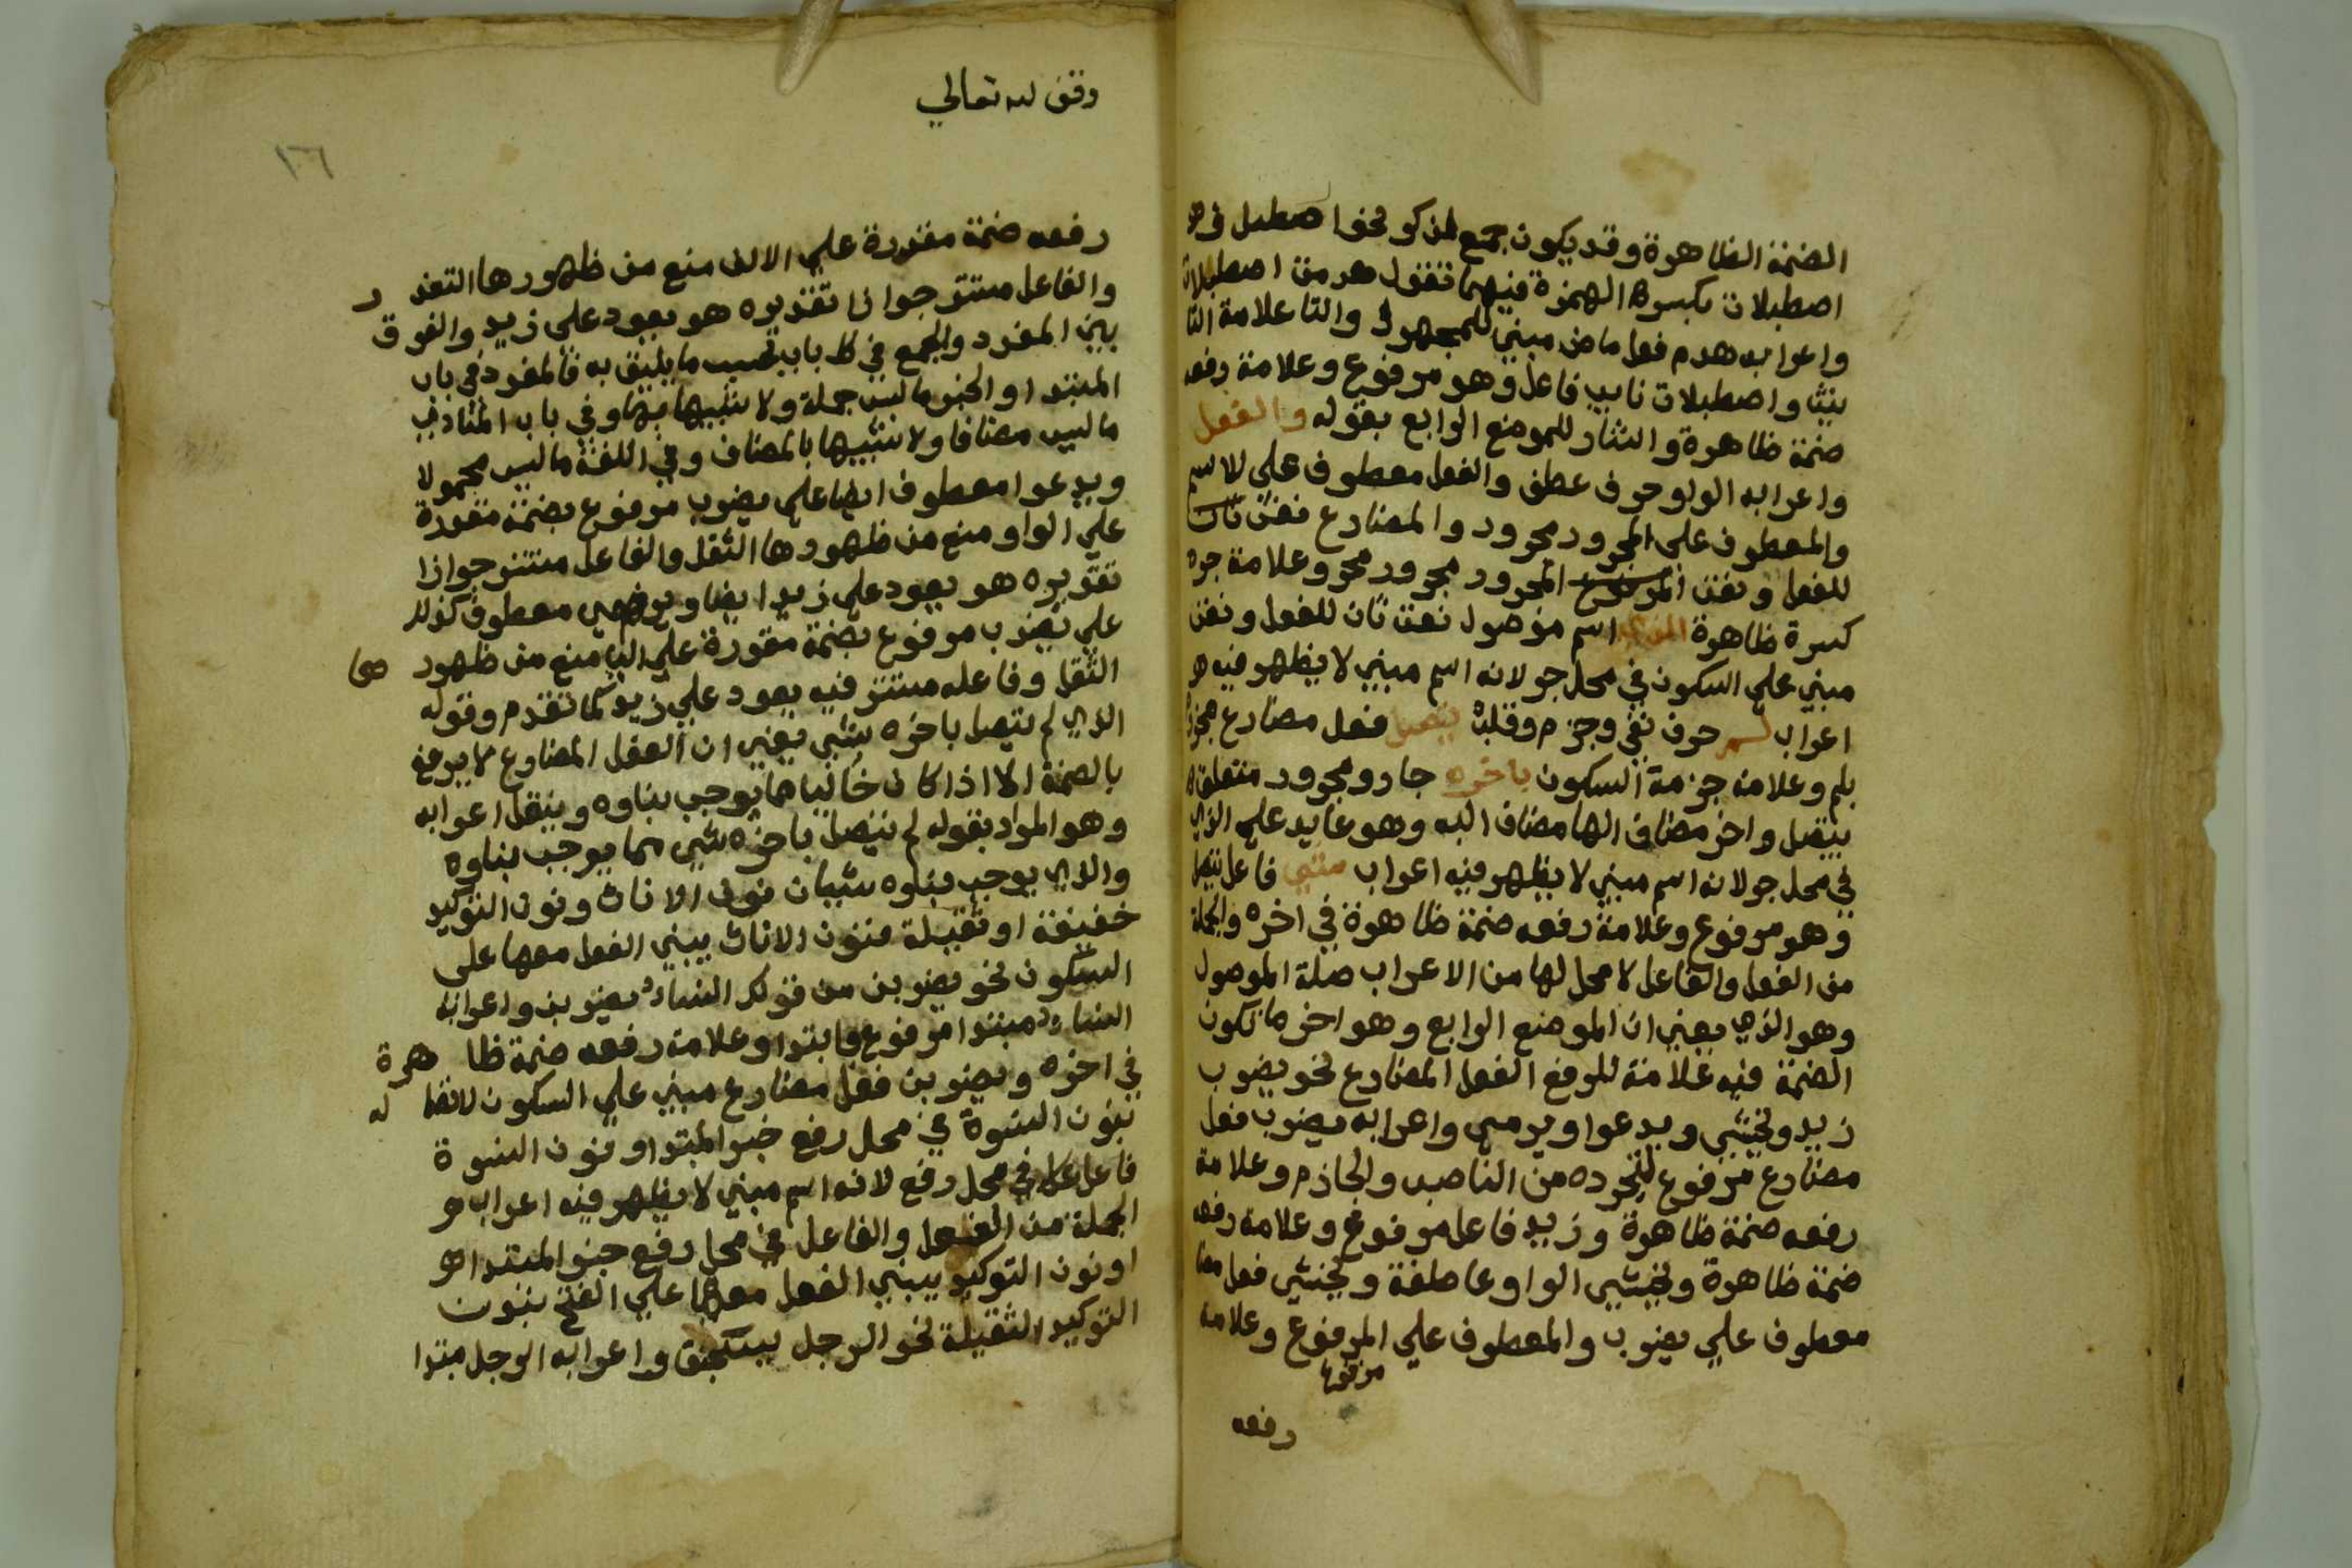 الضمة الظاهرة وقد يكون جمع لمذكر نحو اصطبل في
اصطبلات بكسر الهمزة فيهما تقول هدمت اصطبلات
واعرابه هدم فعل ماض مبني للمجهول والتا علامة التا
نيث واصطبلات نايب فاعل وهو مرفوع وعلامة رفعه
ضمة ظاهرة واشار للموضع الرابع بقوله والفعل
واعرابه الواو حرف عطف والفعل معطوف على الاسم
والمعطوف على المجرور مجرور والمضارع نعت
للفعل ونعت المجرور مجرور وعلامة جره
كسرة ظاهرة الذي اسم موصول نعت ثان للفعل ونعت
مبني على السكون في محل جر لانه اسم مبني لا يظهر فيه
اعراب لم حرف نفي وجزم وقلب يتصل فعل مضارع مجزوم
بلم وعلامة جزمه السكون باخره جار ومجرور متعلق
بيتصل واخر مضاف الها مضاف اليه وهو عايد على الذي
في محل جر لانه اسم مبني لا يظهر فيه اعراب شي فاعل يتصل
وهو مرفوع وعلامة رفعه ضمة ظاهرة في اخره والجملة
من الفعل والفاعل لا محل لها من الاعراب صلة الموصول
وهو الذي يعني ان الموضع الرابع وهو اخر ما تكون
الضمة فيه علامة للرفع الفعل المضارع نحو يضرب
زيد ويخشى ويدعوا ويرمي واعرابه يضرب فعل
مضارع مرفوع لتجرده من الناصب والجازم وعلامة
رفعه ضمة ظاهرة وزيد فاعل مرفوع وعلامة رفعه
ضمة ظاهرة ويخشى الواو عاطفة ويخشى فعل مضا
معطوف على يضرب والمعطوف على المرفوع وعلامة
مرفوع
رفعه
وقف لله تعالي
١٦
رفعه ضمة مقدرة علي الالف منع من ظهورها التعذر
والفاعل مستتر جوازا تقديره هو يعود على زيد والفرق
بين المفرد والجمع في كل باب بحسب ما يليق به فالمفرد في باب
المبتدا والخبر ما ليس جملة ولا شبيها بها وفي باب المنادي
ما ليس مضافا ولا شبيها بالمضاف وفي اللغة ما ليس محمولا
ويدعوا معطوف ايضا على يضرب مرفوع بضمة مقدرة
علي الواو منع من ظهورها الثقل والفاعل مستتر جوازا
تقديره هو يعود على زيد ايضا ويرمي معطوف كذلك
علي يضرب مرفوع بضمة مقدرة علي اليا منع من ظهورها
الثقل وفاعله مستتر فيه يعود علي زيد كما تقدم وقوله
الذي لم يتصل باخره شي يعني ان الفعل المضارع لا يرفع
بالضمة الا اذا كان خاليا مما يوجب بناوه وينقل اعرابه
وهو المراد بقوله لم يتصل باخره شي مما يوجب بناوه
والذي يوجب بناوه شيئان نون الاناث ونون التوكيد
خفيفة او ثقيلة فنون الاناث يبني الفعل معها على
السكون نحو يضربن من قولك النساء يضربن واعرابه
النساء مبتدا مرفوع بالابتدا وعلامة رفعه ضمة ظاهرة
في اخره ويضربن فعل مضارع مبني علي السكون لاتصاله
بنون النسوة في محل رفع خبر المبتدا ونون النسوة
فاعل في محل رفع لانه اسم مبني لا يظهر فيه اعراب و
الجملة من الفعل والفاعل في محل رفع خبر المبتدا
اونون التوكيد يبني الفعل معها علي الفتح بنون
التوكيد الثقيلة نحو الرجل ليسجنن واعرابه الرجل مبتدا